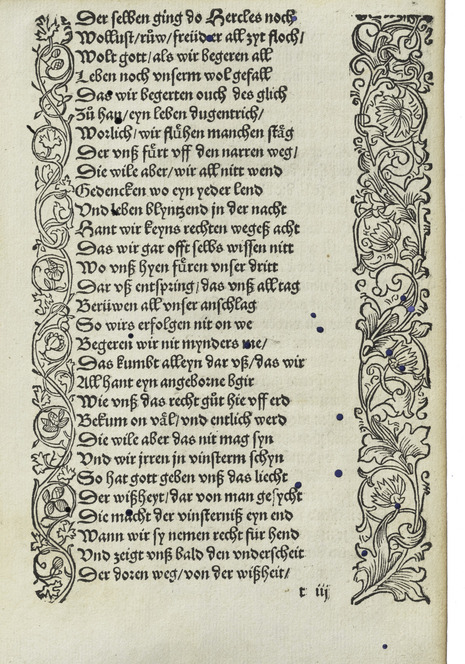 Der selben ging do Hercles noch
Wollust / růw / freüd er all zyt floch /
Wolt gott / als wir begeren all
Leben noch vnserm wolgefall
Das wir begerten ouch des glich
Zů han / eyn leben dugentrich /
Worlich / wir flühen manchen stäg
Der vnß fürt vff den narren weg /
Die wile aber / wir all nitt wend
Gedencken wo eyn yeder lend
Vnd leben blyntzend jn der nacht
Hant wir keyns rechten wegeß acht
Das wir gar offt selbs wissen nitt
Wo vnß hyen füren vnser dritt
Dar vß entspring / das vnß all tag
Berüwen all vnser anschlag
So wirs erfolgen nit on we
Begeren wir nit mynders me /
Das kumbt alleyn dar vß / das wir
All hant eyn angeborne bgir
Wie vnß das recht gůt hie vff erd
Bekum on väl / vnd entlich werd
Die wile aber das nit mag syn
Vnd wir jrren jn vinsterm schyn
So hat gott geben vnß das liecht
Der wißheyt / dar von man gesycht
Die macht der vinsterniß eyn end
Wann wir sy nemen recht für hend
Vnd zeigt vnß bald den vnderscheit
Der doren weg / von der wißheit /
t iij